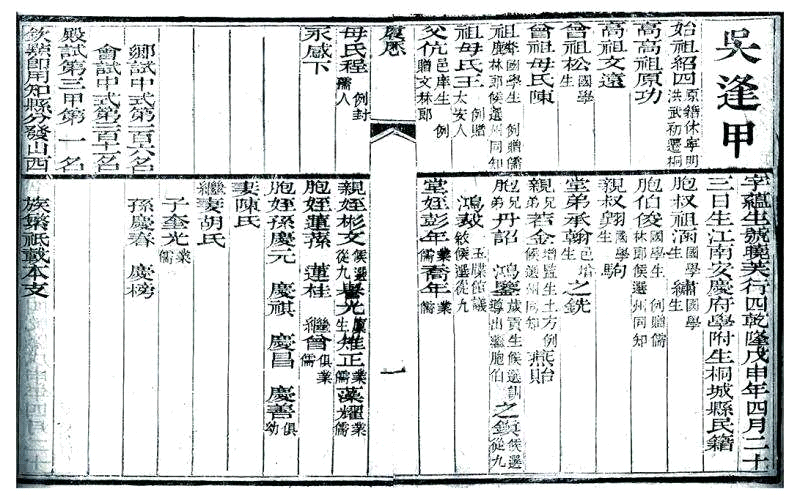 吳逢甲
字蘊生號曉芙行四乾隆戊申年四月二十
三日生江南安慶府學附生桐城縣民籍
始祖紹四 原籍休寧明洪武初遷桐
高高祖原功
高祖文遠
曾祖松 國學生
曾祖母氏陳
祖 國學生 例贈儒林郎候選州同知
祖母氏王 例贈太安人
父伉 邑庠生 例贈文林郎
母氏程 例封孺人
永感下
鄉試中式第 百六名
會試中式第 百十 名
殿試第三甲第一名
欽點即用知縣分發山西
胞叔祖涵 國學生 繡 國學生
胞伯俊 國學生 例贈儒林郎候選州同知
親叔翱 國學生 駒
堂弟承翰 邑增生 之銑
親兄弟若金 增監生土方例候選州同知 燕貽
胞兄弟丹詔 鴻鑒 歲貢生候選訓導出繼胞伯 之鎮 候選從九
鴻 玉牒館議敘候選從九
堂姪彭年 業儒 喬年 業儒
親姪彬文 候選從九 光 生 雉正 業儒 藻耀 業儒
胞姪蓮孫 蓮桂 繼曾 俱業儒
胞姪孫慶元 慶祺 慶昌 慶善 俱幼
妻陳氏
繼妻胡氏
子奎光 業儒
孫慶春 慶榜
族繁祇載本支
一